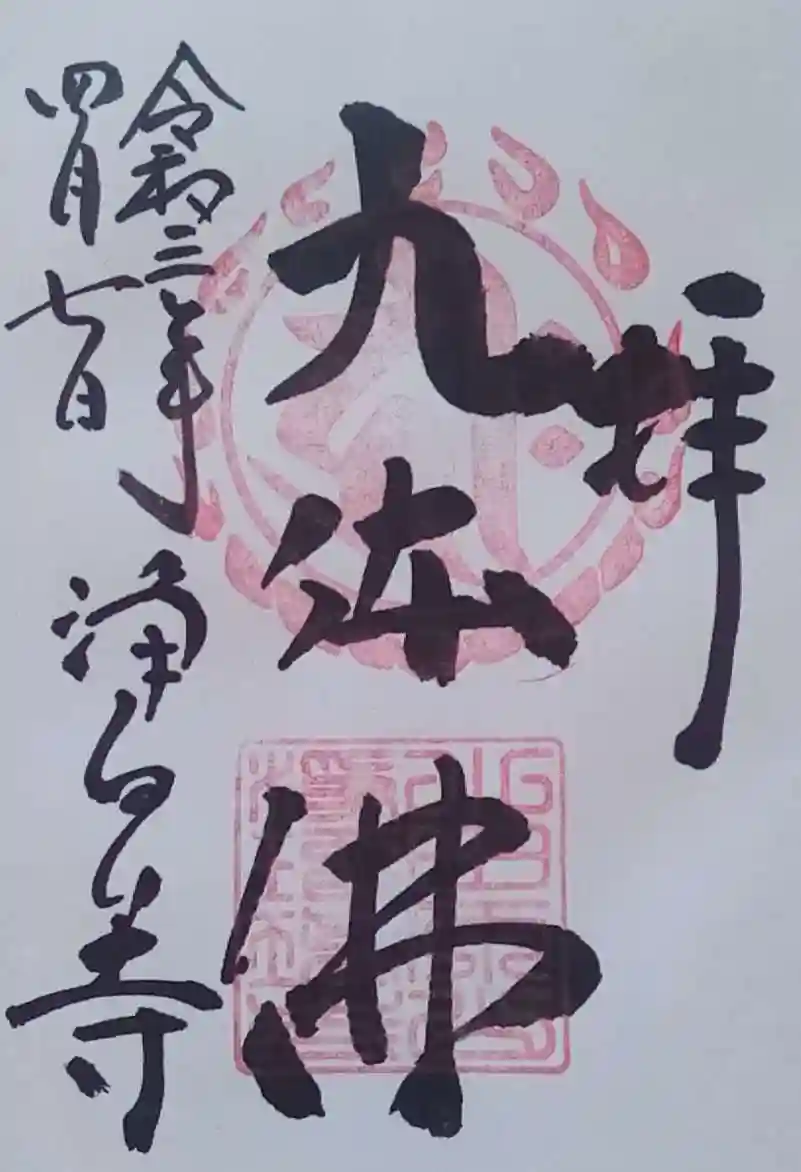 拝
九体佛
令和三年
四月七日
浄るり寺